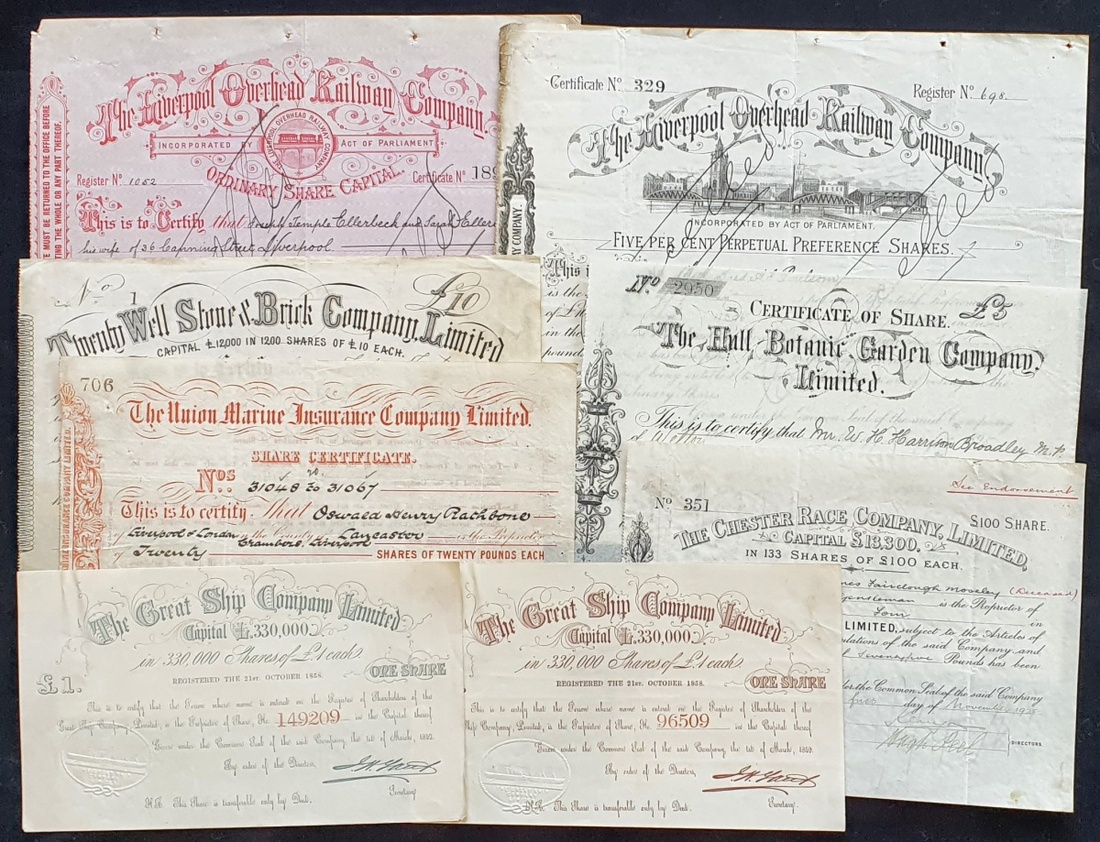 The Liverpool Overhead Railway Company.
INCORPORATED BY ACT OF PARLIAMENT
THE LIVERPOOL OVERHEAD RAILWAY COMPANY
ORDINARY SHARE CAPITAL.
Register No. 1052 Certificate No. 189
This is to Certify that Joseph Temple Ellerbeck and Sarah Eller
his wife of 36 Canning Street Liverpool
E MUST BE RETURNED TO THE OFFICE BEFORE
TING THE WHOLE OR ANY PART THEREOF.
Certificate No. 329 Register No. 698
The Liverpool Overhead Railway Company
INCORPORATED BY ACT OF PARLIAMENT.
FIVE PER CENT PERPETUAL PREFERENCE SHARES.
AY COMPANY.
This i
is the
of £
in the
pound
No. 1 £10
Twenty Well Stone & Brick Company, Limited
CAPITAL £12,000 IN 1200 SHARES OF £10 EACH.
No. 2950 CERTIFICATE OF SHARE. £5
The Hull Botanic Garden Company
Limited.
This is to certify that Mr. W. H. Harrison Broadley M.P.
of Welton
706
The Union Marine Insurance Company Limited.
SHARE CERTIFICATE.
Nos. 31048 to 31067
This is to certify That Oswald Henry Rathbone
Liverpool & London Chambers, Liverpool in the County of Lancaster is the Proprietor
of Twenty SHARES OF TWENTY POUNDS EACH
INSURANCE COMPANY LIMITED.
See Endorsement
No. 351 £100 SHARE.
THE CHESTER RACE COMPANY, LIMITED,
CAPITAL £13,300.
IN 133 SHARES OF £100 EACH.
Fairclough Moseley (Deceased)
gentleman is the Proprietor of
Four in
LIMITED, subject to the Articles of
ulations of the said Company and
Seventyfive Pounds has been
der the Common Seal of the said Company
day of November 1925
DIRECTORS.
The Great Ship Company Limited
Capital £330,000
in 330,000 Shares of £1 each
£1. ONE SHARE
REGISTERED THE 21ST. OCTOBER 1858.
This is to certify that the Person whose name is entered on the Register of Shareholders of the
Great Ship Company, Limited, is the Proprietor of Share, No. 149209 in the Capital thereof
Given under the Common Seal of the said Company the 1st of March, 1862.
By order of the Directors,
Secretary
N.B. This Share is transferable only by Deed.
The Great Ship Company Limited
Capital £330,000
in 330,000 Shares of £1 each
ONE SHARE
REGISTERED THE 21ST. OCTOBER 1858.
This is to certify that the Person whose name is entered on the Register of Shareholders of the
Ship Company, Limited, is the Proprietor of Share, No. 96509 in the Capital thereof
Given under the Common Seal of the said Company the 1st of March, 1862.
By order of the Directors,
Secretary.
N.B. This Share is transferable only by Deed.